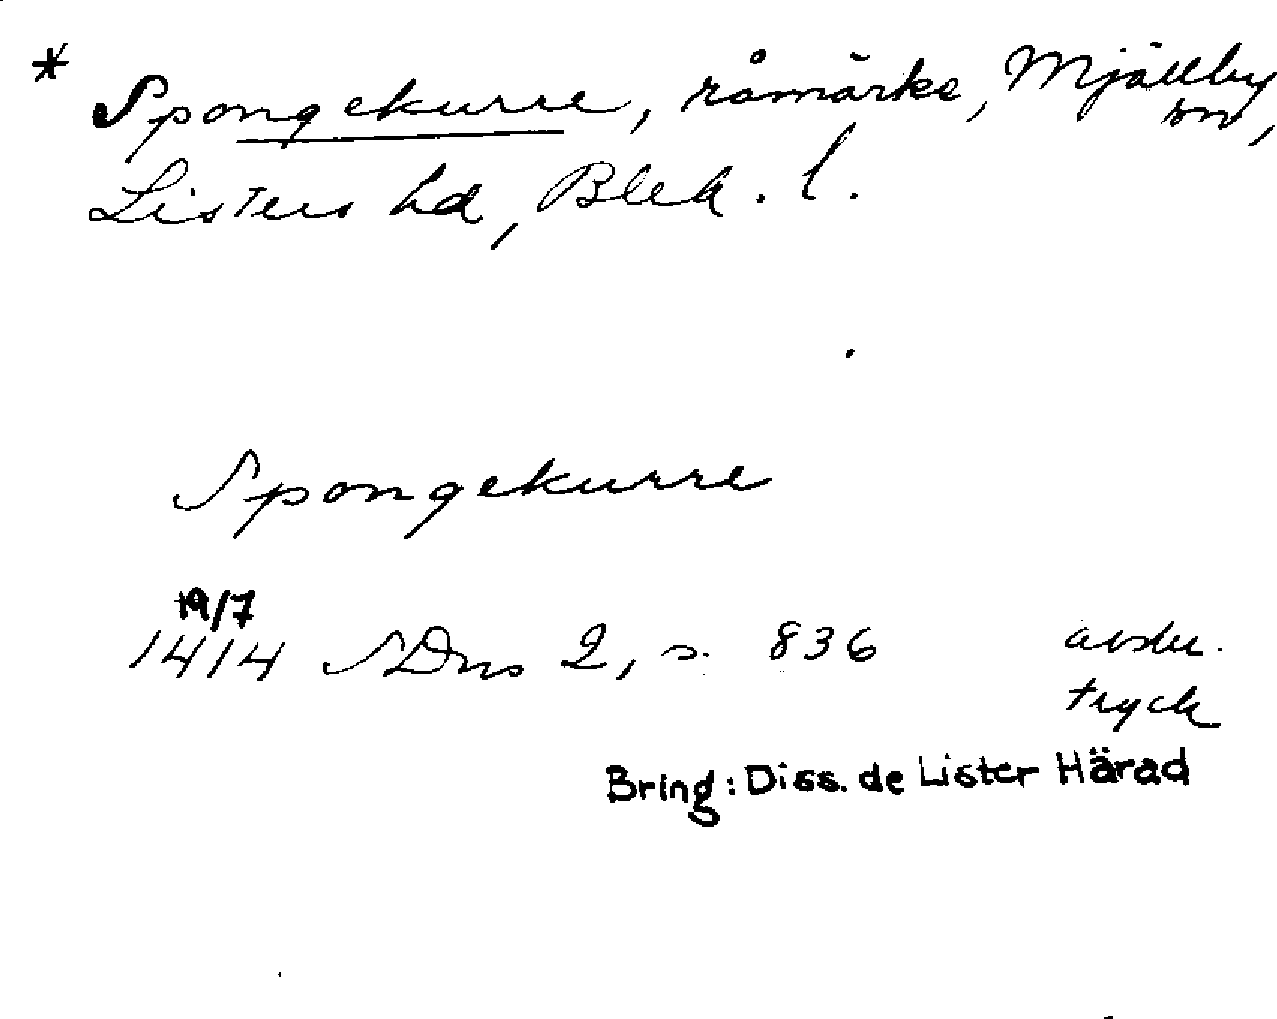 * Spongekurre, råmärke, Mjällby
sn,
Listers hd, Blek. l.
Spongekurre
19/7
1414 SDns 2, s. 836 avskr.
tryck
Bring: Diss. de Lister Härad